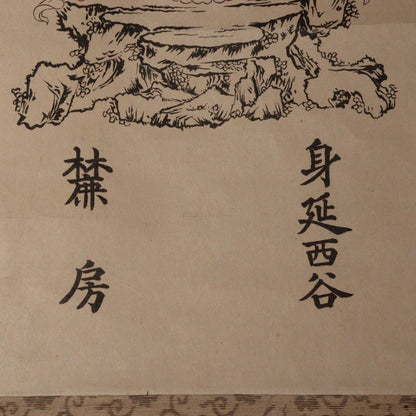 身延西谷
麓房